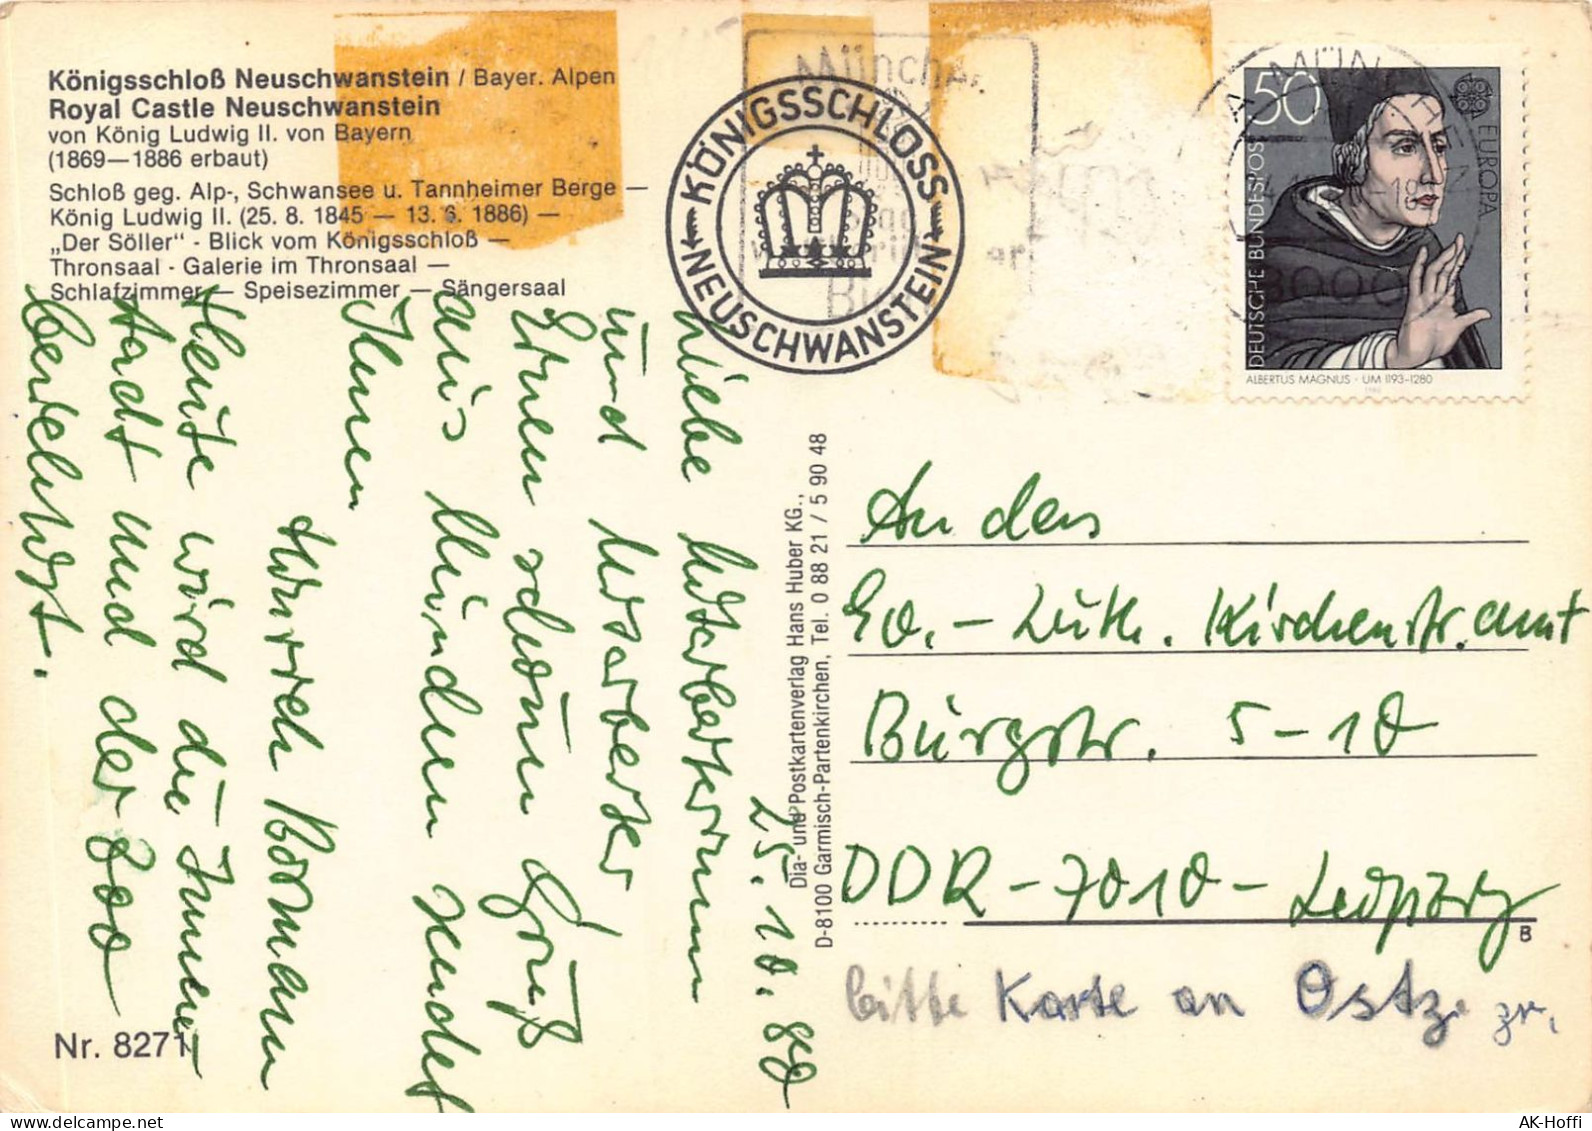 Königsschloß Neuschwanstein / Bayer. Alpen
Royal Castle Neuschwanstein
von König Ludwig II. von Bayern
(1869—1886 erbaut)
Schloß geg. Alp-, Schwansee u. Tannheimer Berge —
König Ludwig II. (25. 8. 1845 — 13. 6. 1886) —
„Der Söller" - Blick vom Königsschloß —
Thronsaal - Galerie im Thronsaal —
Schlafzimmer — Speisezimmer — Sängersaal
KÖNIGSSCHLOSS
NEUSCHWANSTEIN
München
50
EUROPA
DEUTSCHE BUNDESPOST
ALBERTUS MAGNUS · UM 1193–1280
1980
8000
25. 10. 80
Liebe Mitarbeiterinnen
und Mitarbeiter
Einen schönen Gruß
aus München sendet
Ihnen
Hinrich Bormann
Heute wird die Innen-
stadt und der Zoo
besichtigt.
Dia- und Postkartenverlag Hans Huber KG.,
D-8100 Garmisch-Partenkirchen, Tel. 0 88 21 / 5 90 48
An das
Ev.-Luth. Kirchenstr.amt
Burgstr. 5-10
DDR-7010-Leipzig
B
bitte Karte an Ostz. zr.
Nr. 8271
AK-Hoffi